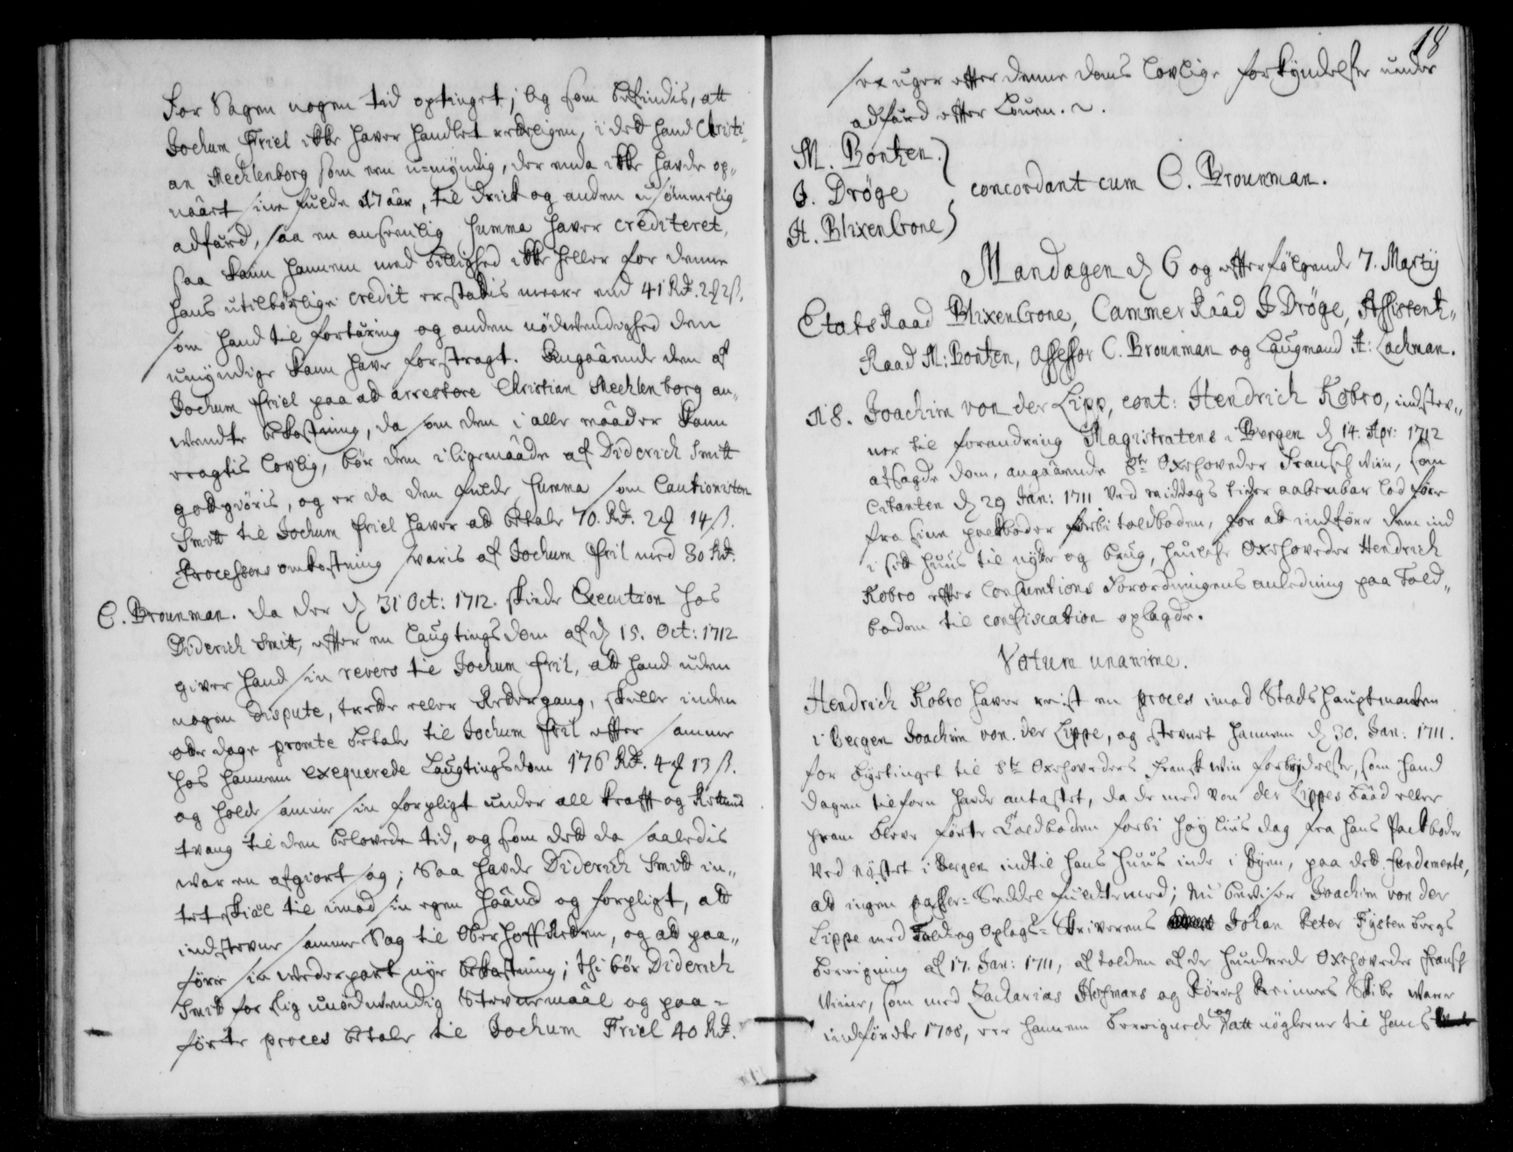 for Sagen nogen tid optinget; Og som befindis, att
Jochum Friel ikke haver handlet redeligen, i det hand Christi-
an Mecklenborg som een u-myndig, der enda ikke hafde op„
naaet sine fulde 17 aar, til drick og anden usømmelig
adfærd, saa en anseenlig summa haver crediteret,
saa kann hannem med billighed ikke heller for denne
hans utilbørlige credit erstadis meere end 41 Rd. 2 ₰ 2 ß.
som hand til fortæring og anden nødvendighed den
umyndige kann have forstragt. Angaaende den af
Jochum friel paa at arrestere Christian Mechlenborg an„
wendte bekostning, da som den i alle maader kann
eragtis lovlig, bør den iligemaade af Diderich Smitt
gottgiøris, og er da den fulde summa som Cautionisten
Smitt til Jochum friel haver att betale 70. Rd. 2 ₰ 14 ß.
Processens omkostning svaris af Jochum friil med 30 Rd.
C. Brounman. da der d. 31 Oct: 1712. skeede Execution hos
Diderich Smitt, efter en Laugtings dom af d. 15. Oct: 1712
giver hand sin revers til Jochum friil, att hand uden
nogen dispute, trette eller Rettergang, skulle inden
otte dage promte betale til Jochum friil efter samme
hos hannem exequerede Laugtingsdom 176 Rd. 4 ₰ 13 ß.
og holde samme sin forpligt under all krafft og Rettens
tvang til den belovede tid, og som dett da saaledis
war en afgiort sag; Saa havde Diderich Smitt in„
tet skiæl til imod sin egen haand og forpligt, att
indstevne samme Sag til Oberhoffretten, og at paa„
føre sin wederpart nye bekostning; thi bør Diderich
Smitt for slig unødvendig Stevnemaal og paa-
førte proces betale til Jochum Friel 40 Rd.
18
sex uger efter denne doms lovlige forkyndelse under
adfærd efter Louen.
M. Bontzen.
J. Drøge
concordant cum C. Brounman.
H. BlixenCrone
Mandagen d. 6 og efterfølgende 7. Martij
Etats Raad BlixenCrone, Cammer Raad J Drøge, Assistentz„
Raad M: Bontzen, Assessor C. Brounman og Laugmand H: Lachman.
N 8. Joachim von der Lipp, cont: Hendrich Kobro, indstev„
ner til forandring Magistratens i Bergen d. 14. Apr: 1712
afsagde dom, angaaende 8te Oxehoveder Fransch viin, som
Citanten d. 29 Jan: 1711 ved middags tider aabenbar lod føre
fra sine packboder forbi toldboden, for att indføre dem ind
i sitt huus til nytte og brug, hvilche Oxehoveder Hendrich
Kobro efter Consumtions Forordningens anledning paa Told„
boden til confiscation oplagde.
Votum unanime.
Hendrich Kobro haver reist en proces imod Stadshauptmanden
i Bergen Joachim von der Lippe, og stevnet hannem d. 30. Jan: 1711.
for Byetinget til 8te Oxehoveders fransk viin forbrydelse, som hand
dagen tilforn havde antastet, da de med von der Lippes baad eller
pram bleve førte Toldboden forbi høy lius dag fra hans Packboder
ved nøstet i Bergen indtil hans huus inde i Byen, paa dett fundamente,
att ingen passer-Seddel fulte med; nu beviser Joachim von der
Lippe med Told og Oplags-Skriverens Johan Peter Fystenbergs
bevisning af 17. Jan: 1711, at tolden af de hundrede Oxehoveder fransch
viine, som med Zacharias Hofmans og Reimers Skibe ware
indførdte 1708, var hannem bevigned og att nøglerne til hans